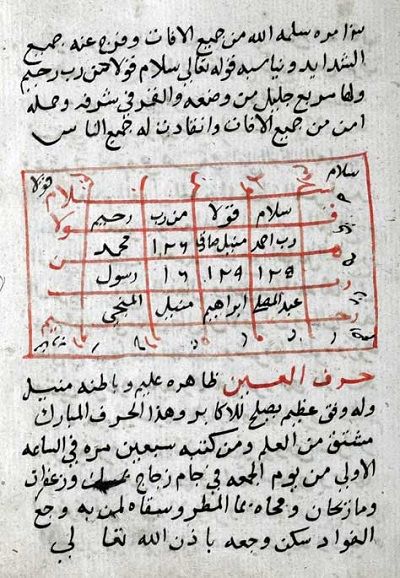 مره سلمه الله من جميع الافات وفرج عنه جميع
الشدايد ويناسبه قوله تعالي سلام قولا من رب رحيم
ولها سريع جليل من وضعه والقمر في شرفه وحمله
امن من جميع الافات وانقادت له جميع الناس
سلام قولا
سلام قولا من رب رحيم
رب احمد ١٢٦ محمد
١٢٨ ١٢٩ ١٦ رسول
ابراهيم
حرف العين ظاهره عليم وباطنه منيل
وله وفق عظيم يصلح للاكابر وهذا الحرف المبارك
مشتق من العلم ومن كتبه سبعين مره في الساعه
الاولي من يوم الجمعه في جام زجاج وزعفران
ومحاه بما المطر وسقاه لمن به وجع
الفواد سكن وجعه باذن الله تعا لي